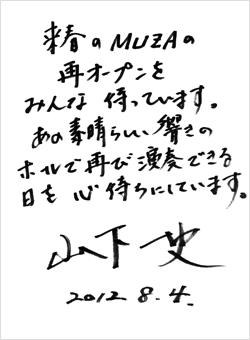 来春のMUZAの
再オープンを
みんな待っています。
あの素晴らしい響きの
ホールで再び演奏できる
日を心待ちにしています。
山下一史
2012 8.4.